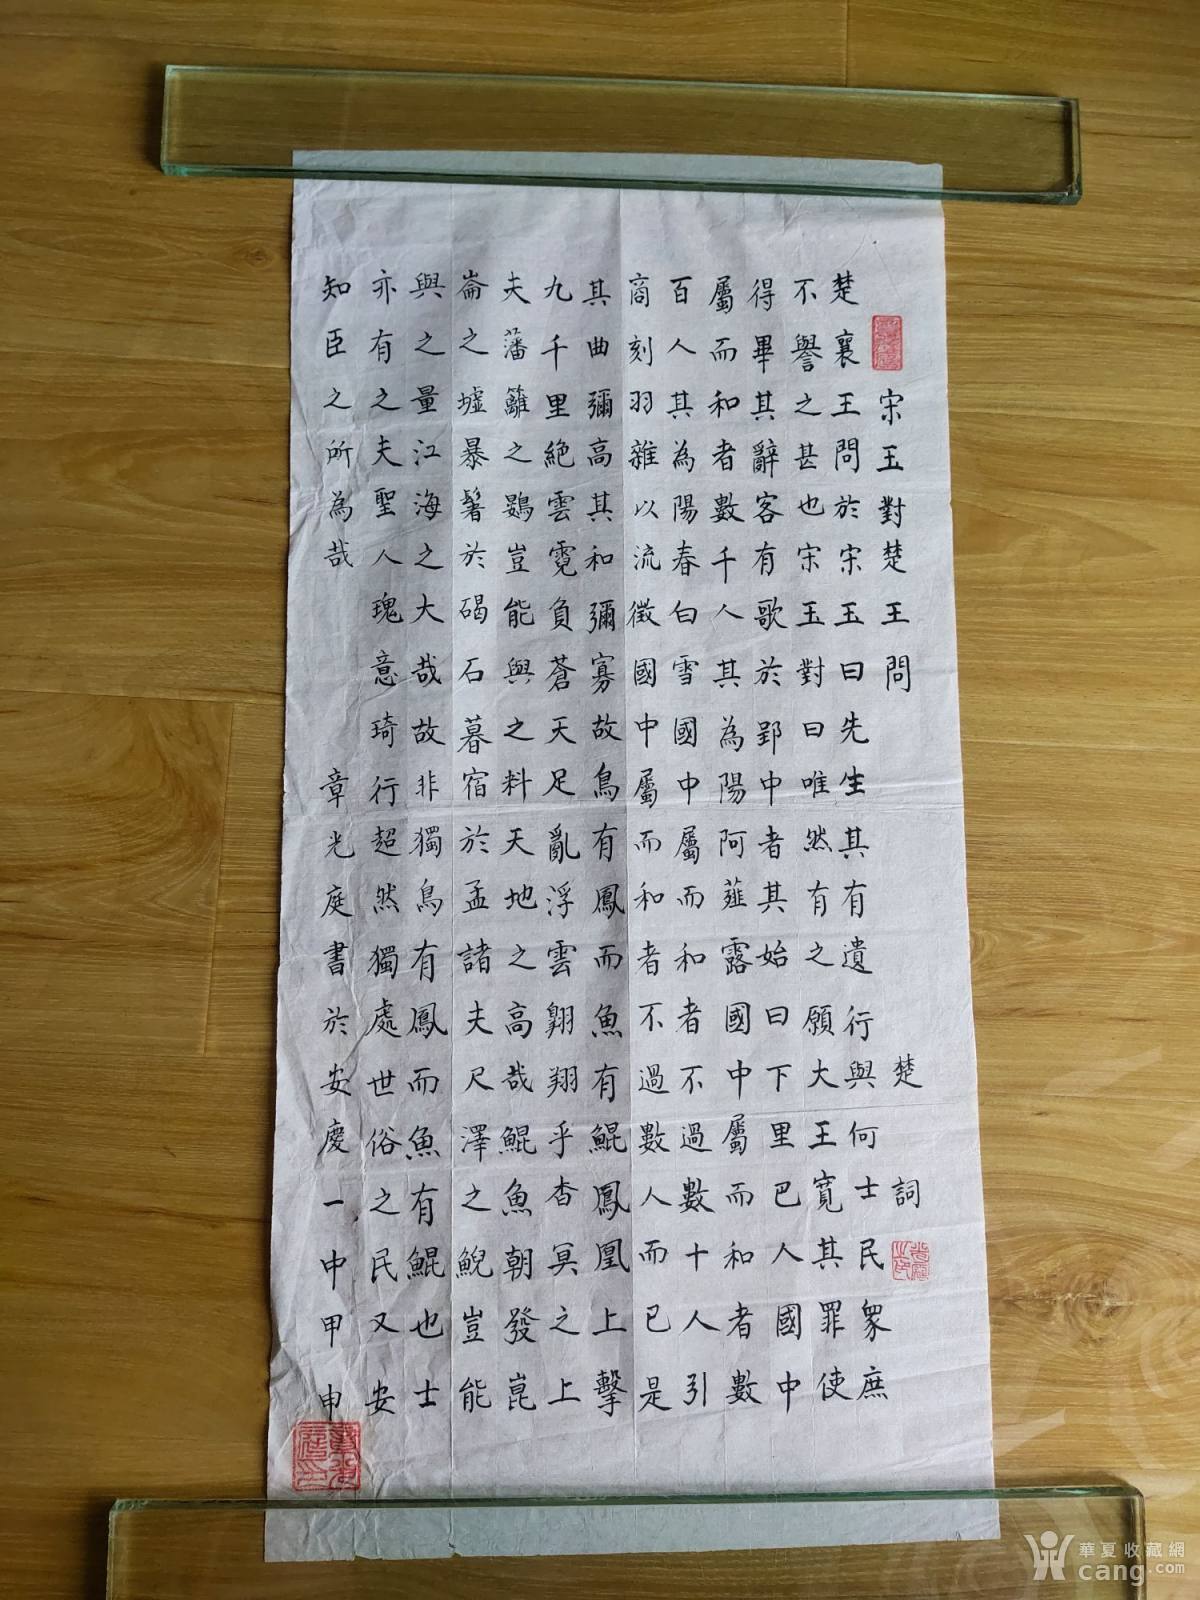 宋玉對楚王問 楚詞
楚襄王問於宋玉曰先生其有遺行與何士民衆庶
不譽之甚也宋玉對曰唯然有之願大王寬其罪使
得畢其辭客有歌於郢中者其始曰下里巴人國中
屬而和者數千人其為陽阿薤露國中屬而和者數
百人其為陽春白雪國中屬而和者不過數十人引
商刻羽雜以流徵國中屬而和者不過數人而已是
其曲彌高其和彌寡故鳥有鳳而魚有鯤鳳凰上擊
九千里絕雲霓負蒼天足亂浮雲翱翔乎杳冥之上
夫藩籬之鷃豈能與之料天地之高哉鯤魚朝發崑
崙之墟暴鬐於碣石暮宿於孟諸夫尺澤之鯢豈能
與之量江海之大哉故非獨鳥有鳳而魚有鯤也士
亦有之夫聖人瑰意琦行超然獨處世俗之民又安
知臣之所為哉 章光庭書於安慶一中甲申
華夏收藏網
cang.com